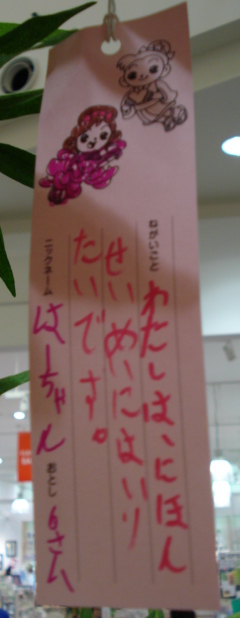 ねがいごと
わたしは、にほん
せいめいにはいり
たいです。
ニックネーム はーちゃん おとし 6さい